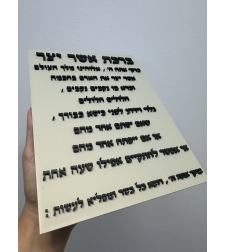 ברכת אשר יצר
ברוך אתה ה', אלוהינו מלך העולם
אשר יצר את האדם בחכמה
וברא בו נקבים נקבים,
חלולים חלולים
גלוי וידוע לפני כיסא כבודך,
שאם יסתם אחד מהם
או אם יפתח אחד מהם
אי אפשר להתקיים אפילו שעה אחת
ברוך אתה ה', רופא כל בשר ומפליא לעשות: